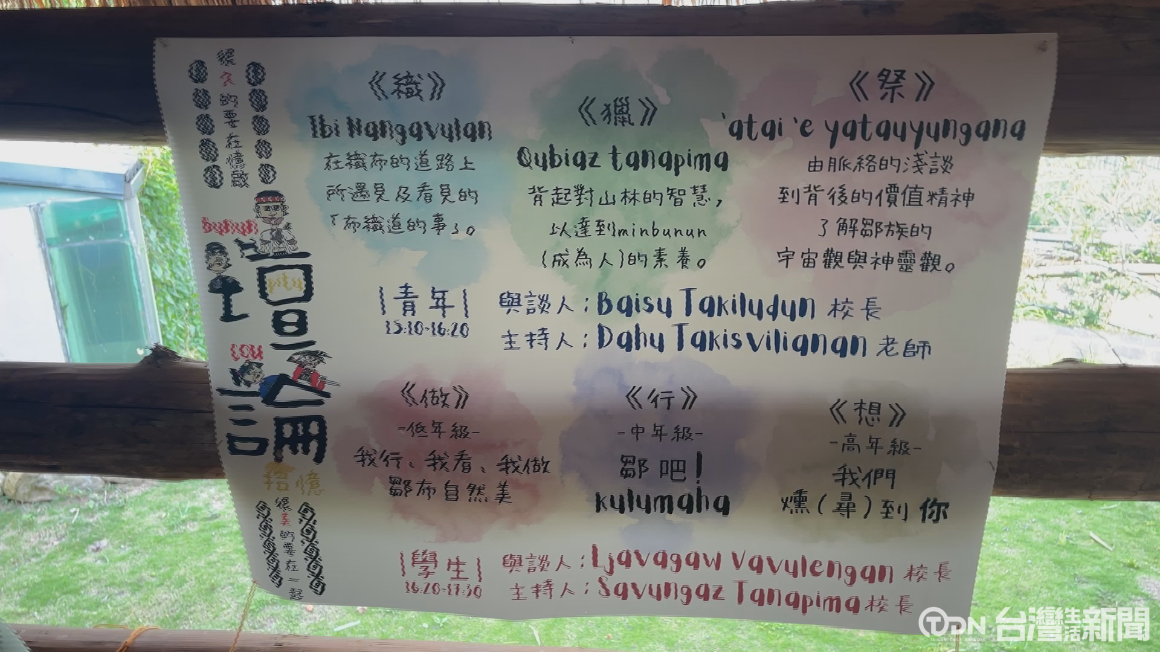 很久的要在憶感
bunun
cou
討論
拾憶
很美的要在一起
《織》
Ibi Nangavulan
在織布的道路上
所遇見及看見的
「布織道的事」。
《獵》
Qubiaz tanapima
背起對山林的智慧,
以達到minbunun
(成為人)的素養。
《祭》
'atai 'e yatauyungana
由脈絡的淺談
到背後的價值精神
了解鄒族的
宇宙觀與神靈觀。
{青年}
15:10-16:20
與談人:Baisu Takiludun 校長
主持人:Dahu Takisvilianan 老師
《做》
-低年級-
我行、我看、我做
鄒布自然美
《行》
-中年級-
鄒吧!
kulumaha
《想》
-高年級-
我們
燻(尋)到你
{學生}
16:20-17:30
與談人:Ljavagaw Vavulengan 校長
主持人:Savungaz Tanapima 校長
TDN 台灣生活新聞